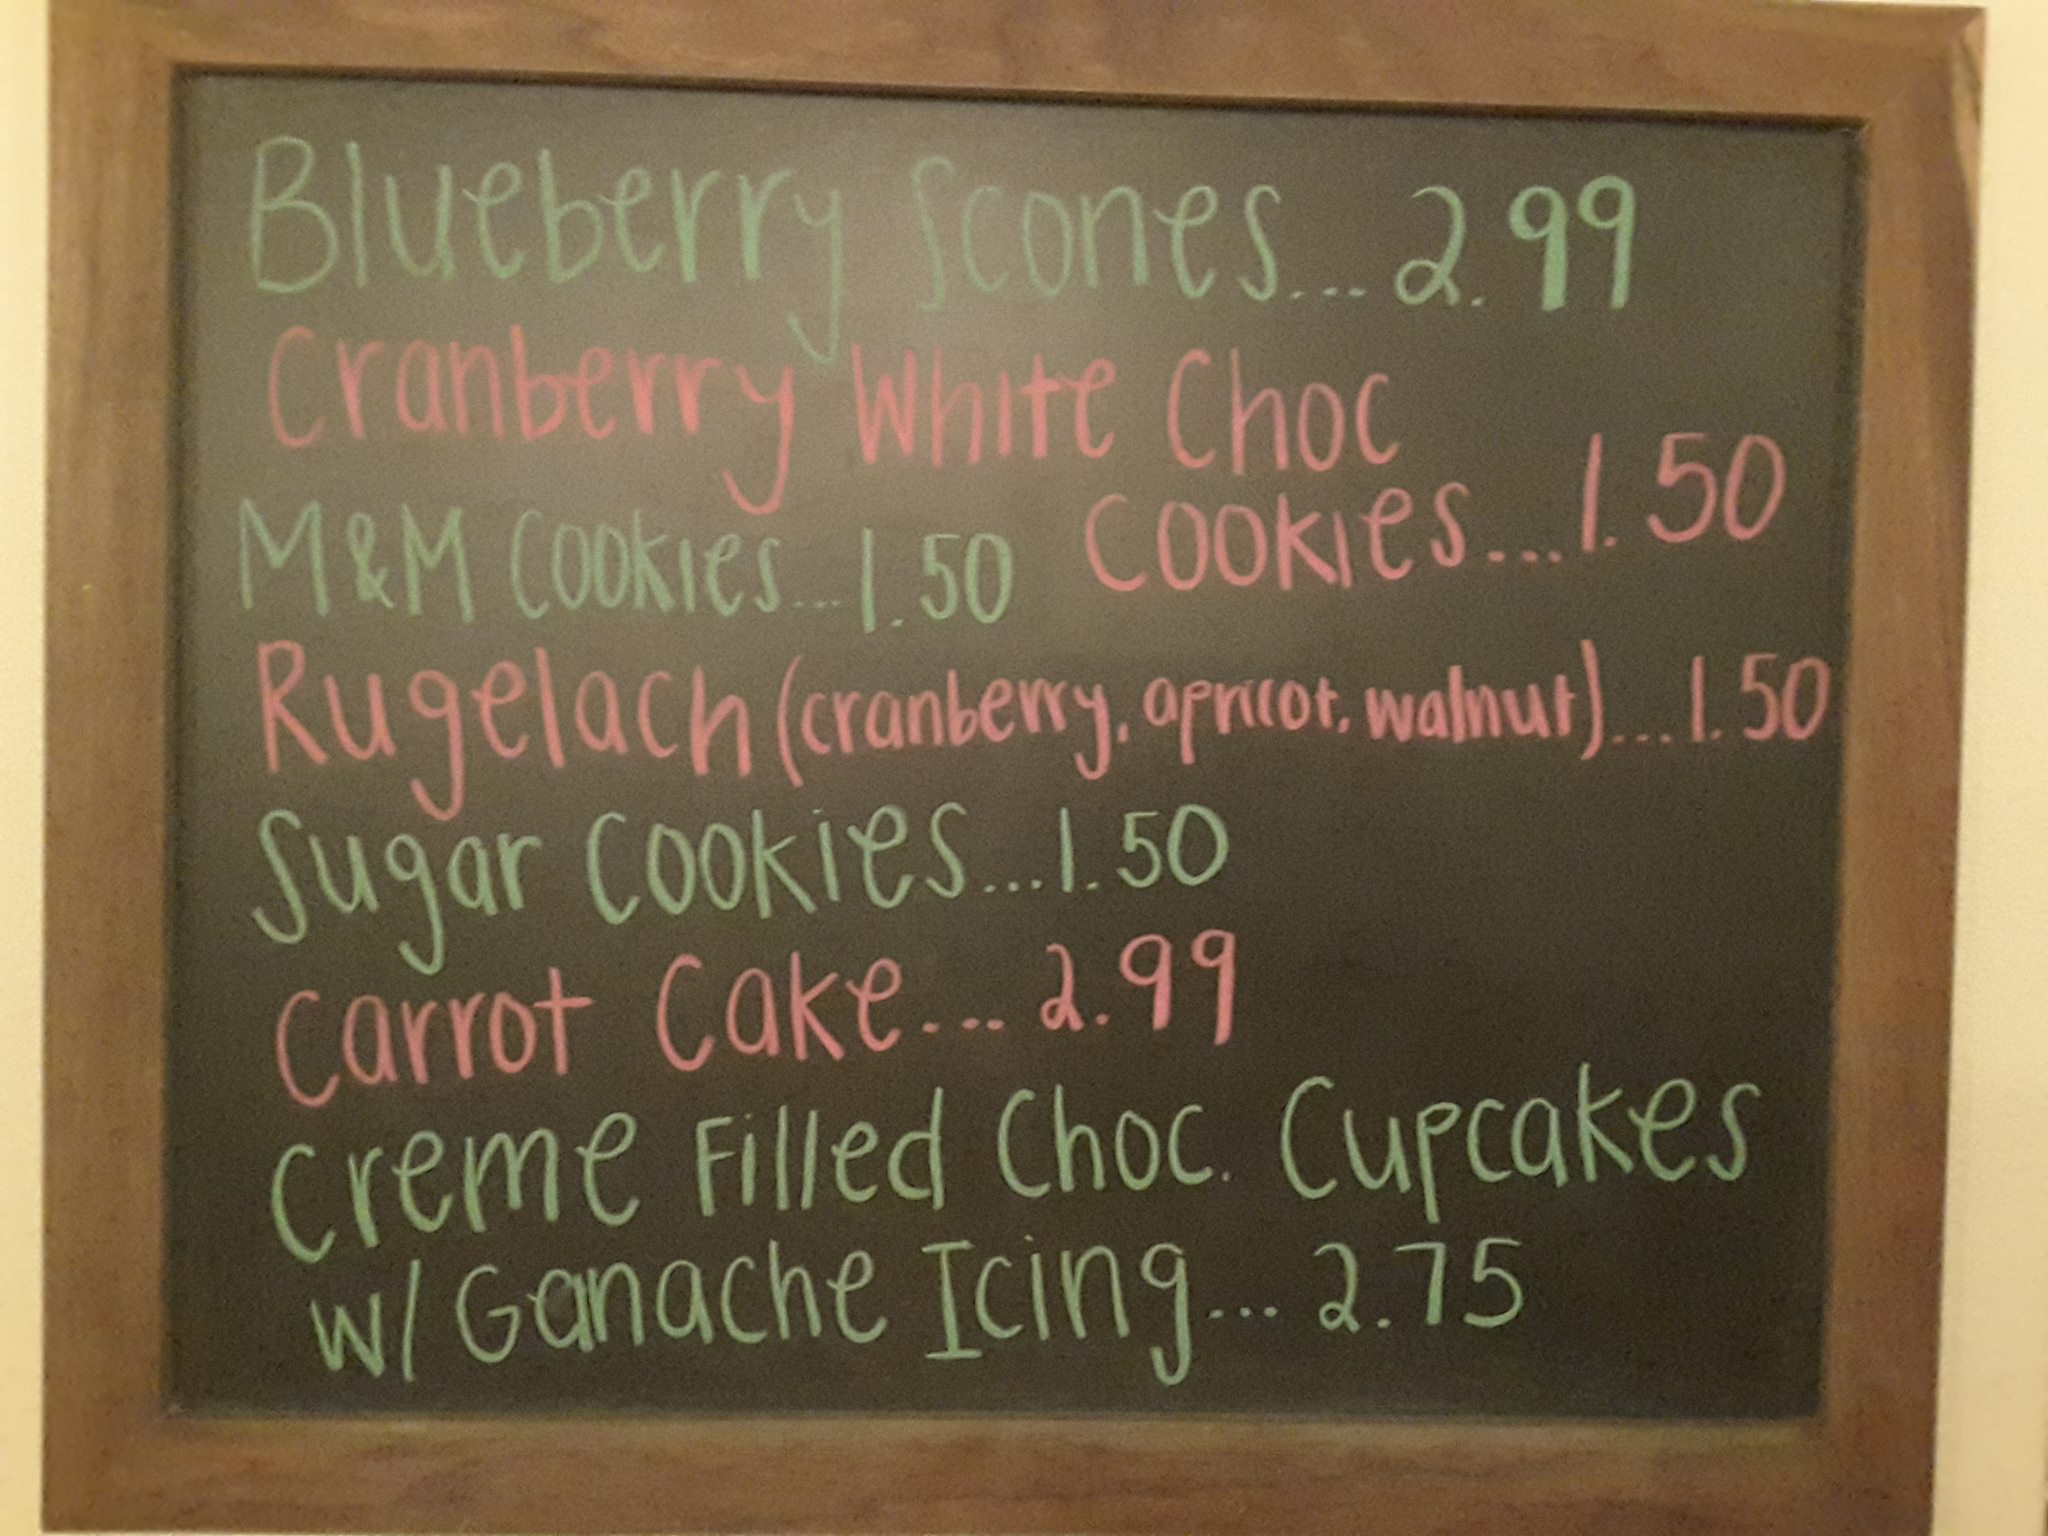 Blueberry Scones... 2.99
Cranberry White Choc
Cookies... 1.50
M&M Cookies... 1.50
Rugelach (cranberry, apricot, walnut)... 1.50
Sugar Cookies... 1.50
Carrot Cake... 2.99
Creme Filled Choc. Cupcakes
w/ Ganache Icing... 2.75